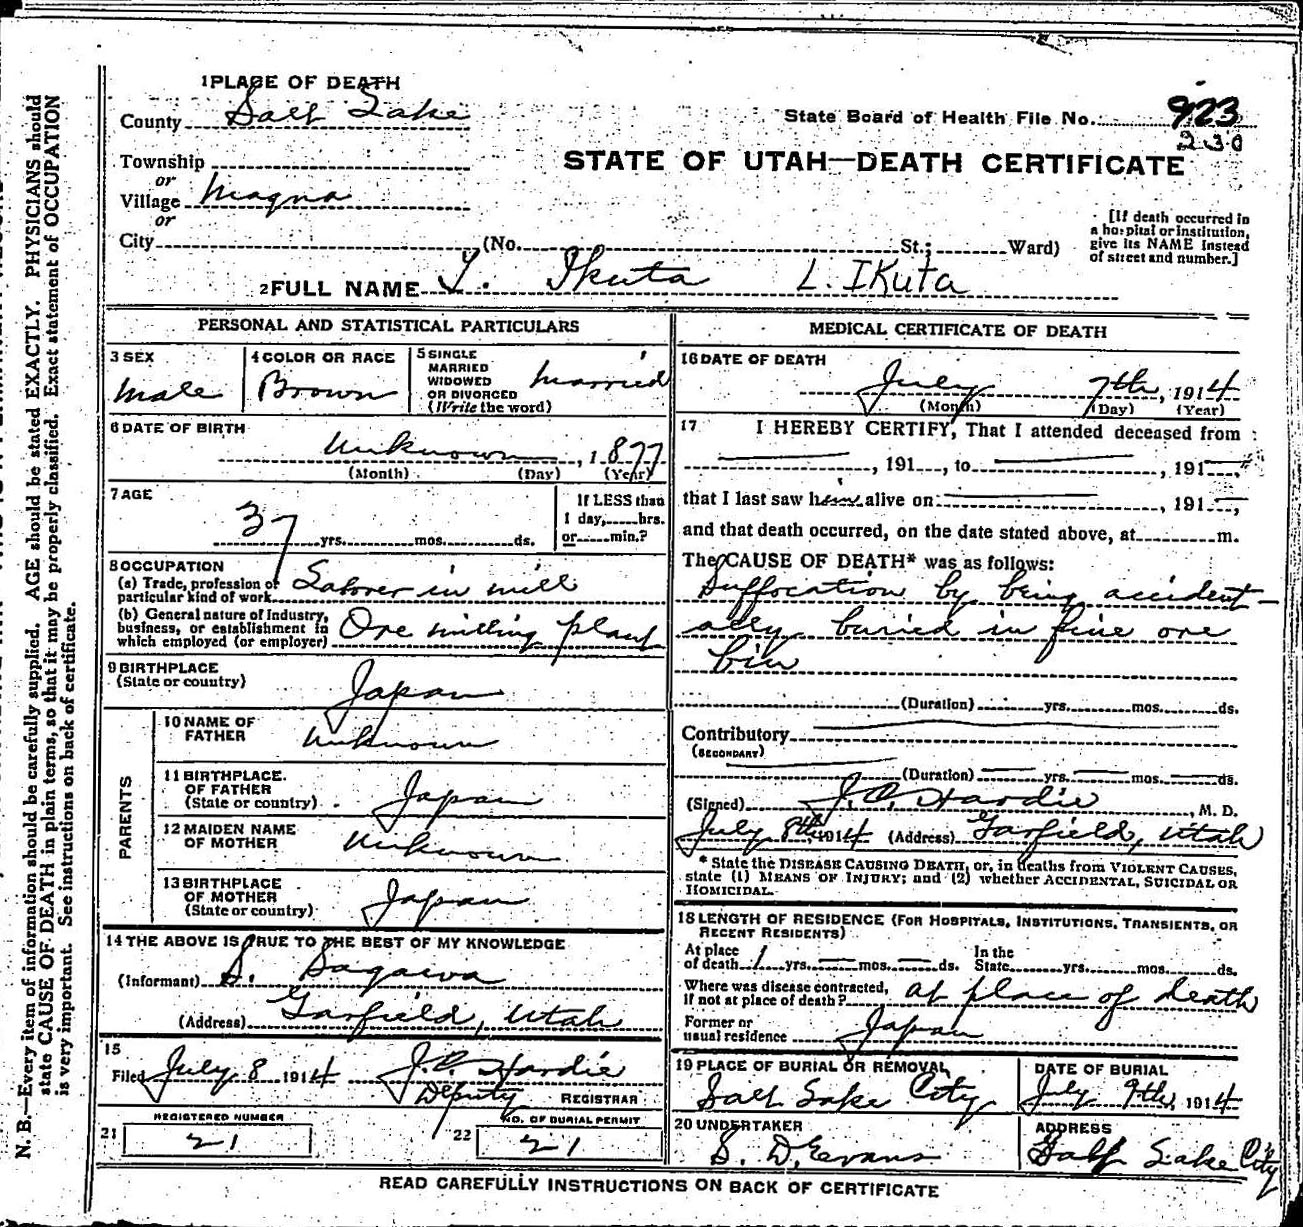 1 PLACE OF DEATH
County Salt Lake
State Board of Health File No. 923
230
Township
or
Village Magna
or
City (No. St.; Ward)
STATE OF UTAH—DEATH CERTIFICATE
[If death occurred in
a hospital or institution,
give its NAME instead
of street and number.]
2 FULL NAME Y. Ikuta L. IKuta
PERSONAL AND STATISTICAL PARTICULARS
3 SEX
Male
4 COLOR OR RACE
Brown
5 SINGLE
MARRIED
WIDOWED
OR DIVORCED
(Write the word)
Married
6 DATE OF BIRTH
Unknown, 1877
(Month) (Day) (Year)
7 AGE
37 yrs. mos. ds.
If LESS than
1 day, hrs.
or min.?
8 OCCUPATION
(a) Trade, profession or
particular kind of work Laborer in mill
(b) General nature of industry,
business, or establishment in
which employed (or employer) Ore milling plant
9 BIRTHPLACE
(State or country)
Japan
PARENTS
10 NAME OF
FATHER
Unknown
11 BIRTHPLACE.
OF FATHER
(State or country)
Japan
12 MAIDEN NAME
OF MOTHER
Unknown
13 BIRTHPLACE
OF MOTHER
(State or country)
Japan
14 THE ABOVE IS TRUE TO THE BEST OF MY KNOWLEDGE
(Informant) S. Sagawa
(Address) Garfield, Utah
15
Filed July 8 1914 J.C. Hardie
Deputy REGISTRAR
REGISTERED NUMBER
21 21
NO. OF BURIAL PERMIT
22 21
MEDICAL CERTIFICATE OF DEATH
16 DATE OF DEATH
July 7th, 1914
(Month) (Day) (Year)
17 I HEREBY CERTIFY, That I attended deceased from
, 191 , to , 191 ,
that I last saw him alive on , 191 ,
and that death occurred, on the date stated above, at m.
The CAUSE OF DEATH* was as follows:
Suffocation by being accident-
ally buried in fine ore
bin
(Duration) yrs. mos. ds.
Contributory
(SECONDARY)
(Duration) yrs. mos. ds.
(Signed) J.C. Hardie, M. D.
July 8th, 1914 (Address) Garfield, Utah
* State the DISEASE CAUSING DEATH, or, in deaths from VIOLENT CAUSES,
state (1) MEANS OF INJURY; and (2) whether ACCIDENTAL, SUICIDAL OR
HOMICIDAL.
18 LENGTH OF RESIDENCE (FOR HOSPITALS, INSTITUTIONS, TRANSIENTS, OR
RECENT RESIDENTS)
At place
of death 1 yrs. mos. ds.
In the
State yrs. mos. ds.
Where was disease contracted,
if not at place of death? at place of death
Former or
usual residence Japan
19 PLACE OF BURIAL OR REMOVAL
Salt Lake City
DATE OF BURIAL
July 9th, 1914
20 UNDERTAKER
S. D. Evans
ADDRESS
Salt Lake City
READ CAREFULLY INSTRUCTIONS ON BACK OF CERTIFICATE
N. B.—Every item of information should be carefully supplied. AGE should be stated EXACTLY. PHYSICIANS should
state CAUSE OF DEATH in plain terms, so that it may be properly classified. Exact statement of OCCUPATION
is very important. See instructions on back of certificate.